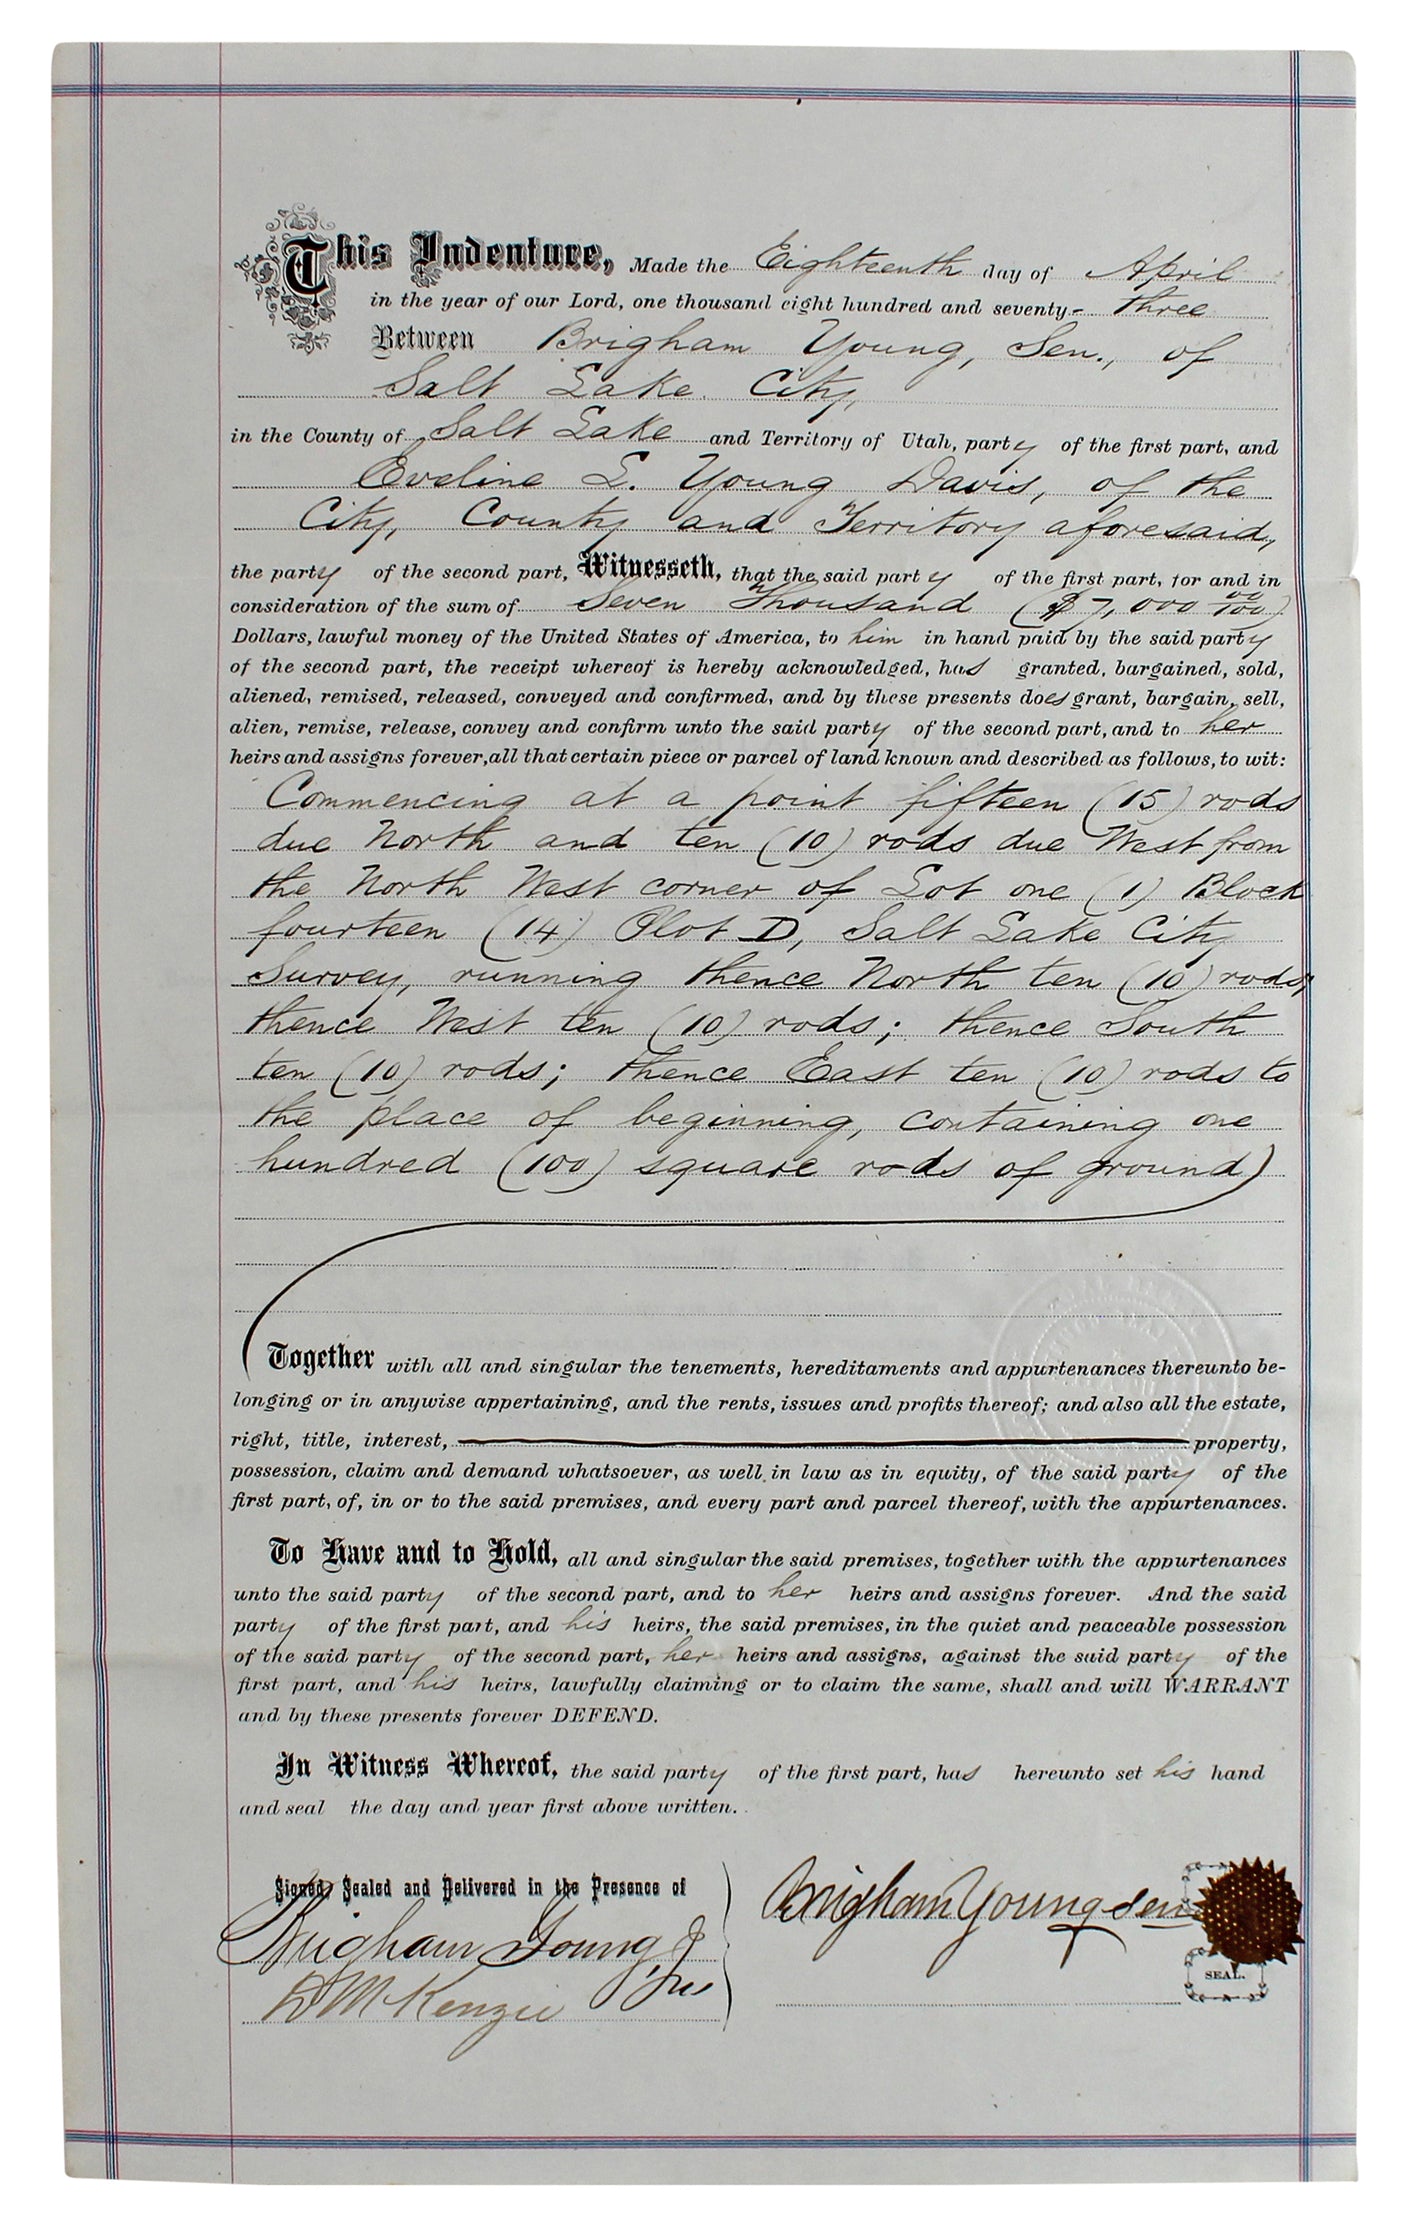 This Indenture, Made the Eighteenth day of April
in the year of our Lord, one thousand eight hundred and seventy- three
Between Brigham Young, Sen., of
Salt Lake City,
in the County of Salt Lake and Territory of Utah, party of the first part, and
Eveline L. Young Davis, of the
City, County and Territory aforesaid,
the party of the second part, Witnesseth, that the said party of the first part, for and in
consideration of the sum of Seven Thousand ($7,000 00/100)
Dollars, lawful money of the United States of America, to him in hand paid by the said party
of the second part, the receipt whereof is hereby acknowledged, has granted, bargained, sold,
aliened, remised, released, conveyed and confirmed, and by these presents does grant, bargain, sell,
alien, remise, release, convey and confirm unto the said party of the second part, and to her
heirs and assigns forever, all that certain piece or parcel of land known and described as follows, to wit:
Commencing at a point fifteen (15) rods
due North and ten (10) rods due West from
the North West corner of Lot one (1) Block
fourteen (14) Plot D, Salt Lake City
Survey, running thence North ten (10) rods;
thence West ten (10) rods; thence South
ten (10) rods; thence East ten (10) rods to
the place of beginning, containing one
hundred (100) square rods of ground
Together with all and singular the tenements, hereditaments and appurtenances thereunto be-
longing or in anywise appertaining, and the rents, issues and profits thereof; and also all the estate,
right, title, interest, property,
possession, claim and demand whatsoever, as well in law as in equity, of the said party of the
first part, of, in or to the said premises, and every part and parcel thereof, with the appurtenances.
To Have and to Hold, all and singular the said premises, together with the appurtenances
unto the said party of the second part, and to her heirs and assigns forever. And the said
party of the first part, and his heirs, the said premises, in the quiet and peaceable possession
of the said party of the second part, her heirs and assigns, against the said party of the
first part, and his heirs, lawfully claiming or to claim the same, shall and will WARRANT
and by these presents forever DEFEND.
In Witness Whereof, the said party of the first part, has hereunto set his hand
and seal the day and year first above written.
Signed, Sealed and Delivered in the Presence of
Brigham Young Sen
Brigham Young Jr
D McKenzie
SEAL.